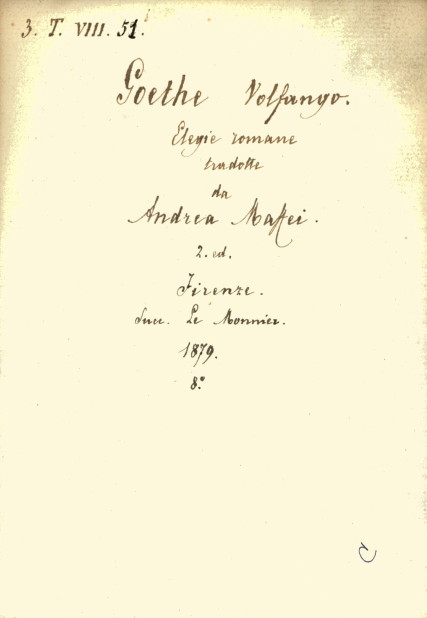 3. T. VIII. 51.
Goethe Volfango.
Elegie romane
tradotte
da
Andrea Maffei.
2. ed.
Firenze.
Succ. Le Monnier.
1879.
8.°